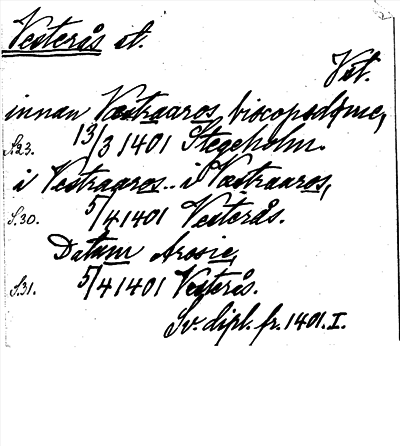 Vesterås st.
Vst.
innan Væstraaros biscopsdøme,
S.23. 13/3 1401 Stegeholm.
i Vestraaros .. i Væstraaros,
S.30. 5/4 1401 Vesterås.
Datum Arosie,
S.31. 5/4 1401 Vesterås.
Sv. dipl. fr. 1401. I.